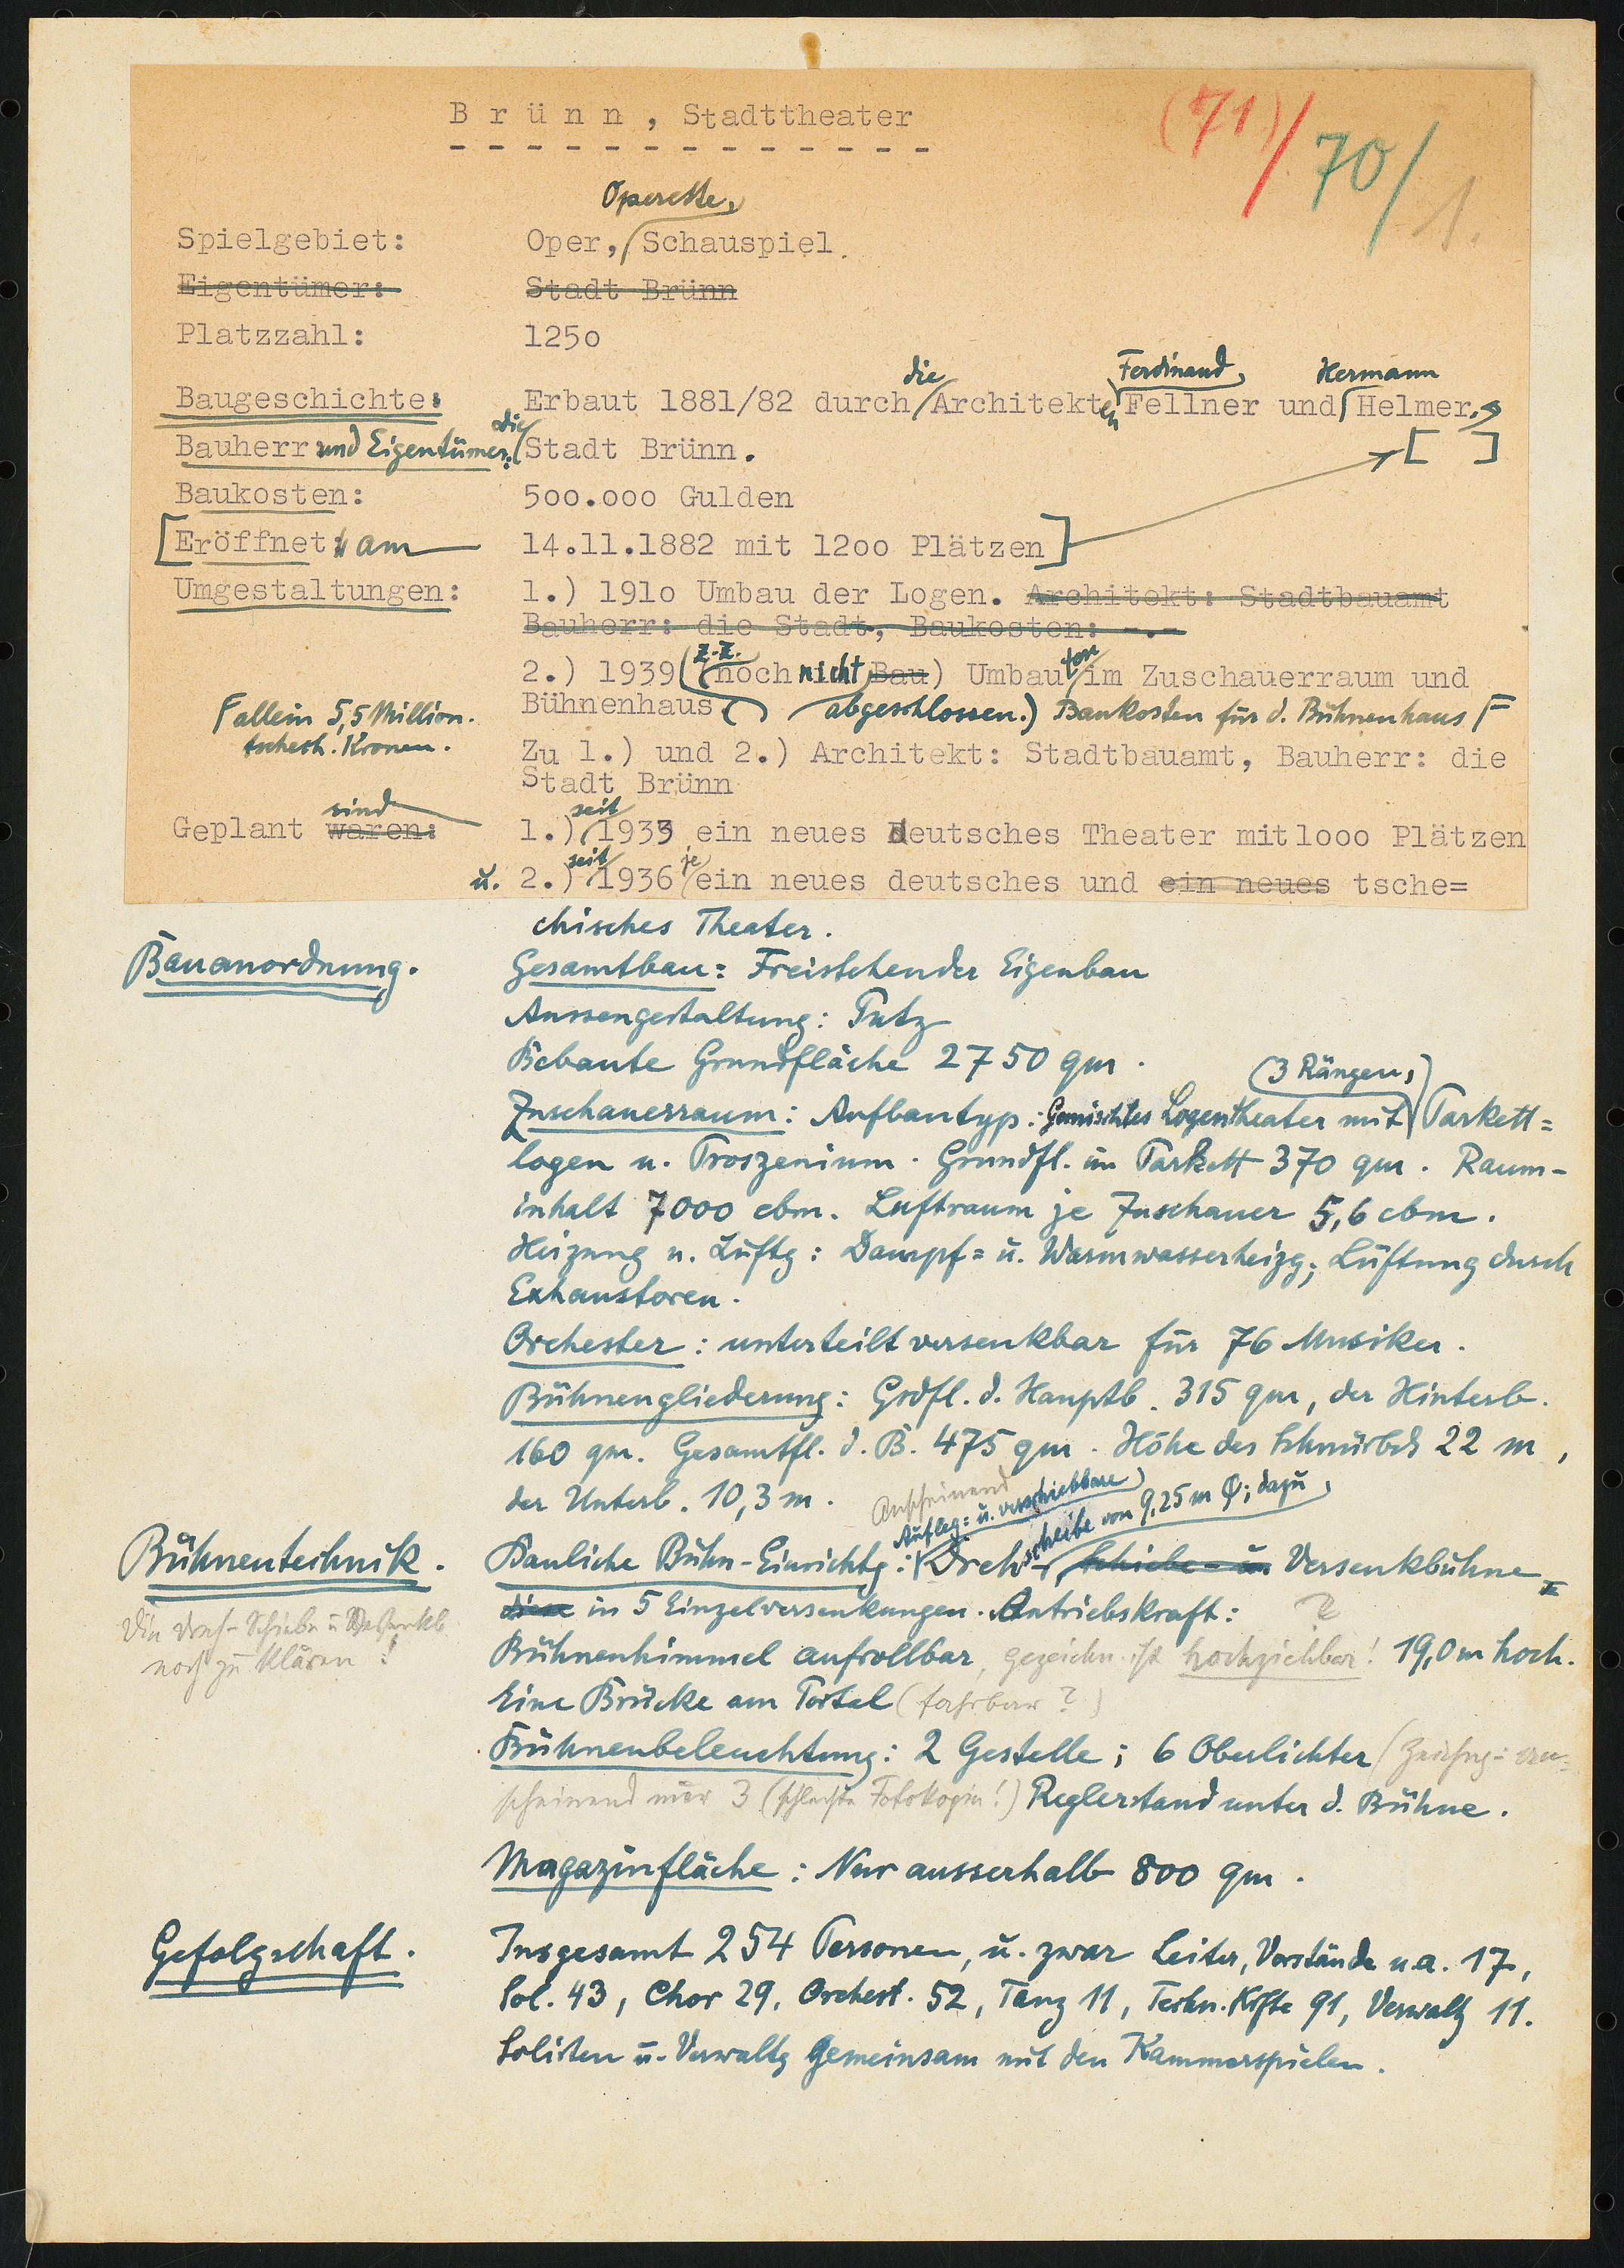 Brünn, Stadttheater
(71)/ 70/ 1.
Operette,
Spielgebiet: Oper, Schauspiel.
Eigentümer: Stadt Brünn
Platzzahl: 125o
die Ferdinand Hermann
Baugeschichte: Erbaut 1881/82 durch Architekten Fellner und Helmer.
die
Bauherr und Eigentümer: Stadt Brünn. [ ]
Baukosten: 5oo.ooo Gulden
[Eröffnet am 14.11.1882 mit 12oo Plätzen]
Umgestaltungen: 1.) 191o Umbau der Logen. Architekt: Stadtbauamt
Bauherr: die Stadt, Baukosten: -.-
z.Z.
2.) 1939 (noch nicht Bau) Umbau im Zuschauerraum und
Bühnenhaus abgeschlossen.) Baukosten für d. Bühnenhaus
allein 5,5 Million.
tschech. Kronen.
Zu 1.) und 2.) Architekt: Stadtbauamt, Bauherr: die
Stadt Brünn
sind seit
Geplant waren: 1.) 1933 ein neues deutsches Theater mit 1ooo Plätzen
seit je
u. 2.) 1936 ein neues deutsches und ein neues tsche=
chisches Theater.
Bauanordnung. Gesamtbau: Freistehender Eigenbau
Aussengestaltung: Putz
Bebaute Grundfläche 2750 qm.
(3 Rängen,)
Zuschauerraum: Aufbautyp: Gemischtes Logentheater mit Parkett=
logen u. Proszenium. Grundfl. im Parkett 370 qm. Raum-
inhalt 7000 cbm. Luftraum je Zuschauer 5,6 cbm.
Heizung u. Lüftg: Dampf= u. Warmwasserheizg; Lüftung durch
Exhaustoren.
Orchester: unterteilt versenkbar für 76 Musiker.
Bühnengliederung: Grdfl. d. Hauptb. 315 qm, der Hinterb.
160 qm. Gesamtfl. d. B. 475 qm. Höhe des Schnürbds 22 m,
der Unterb. 10,3 m.
Anscheinend
Aufleg= u. verschiebbare
scheibe von 9,25 m Ø; dazu
Bühnentechnik. Bauliche Bühn-Einrichtg: Dreh-, Schiebe- u. Versenkbühne
diese in 5 Einzelversenkungen. Antriebskraft: ?
Die Dreh- Schiebe u Versenkb
noch zu klären!
Bühnenhimmel aufrollbar, gezeichn. ist hochziehbar! 19,0 m hoch.
Eine Brücke am Portal (fahrbar?)
Bühnenbeleuchtung: 2 Gestelle; 6 Oberlichter (Zeichng: an=
scheinend nur 3 (schlechte Fotokopie!) Reglerstand unter d. Bühne.
Magazinfläche: Nur ausserhalb 800 qm.
Gefolgschaft. Insgesamt 254 Personen, u. zwar Leiter, Vorstände u.a. 17,
Sol. 43, Chor 29, Orchest. 52, Tanz 11, Techn. Kräfte 91, Verwaltg 11.
Solisten u. Verwaltg gemeinsam mit den Kammerspielen.